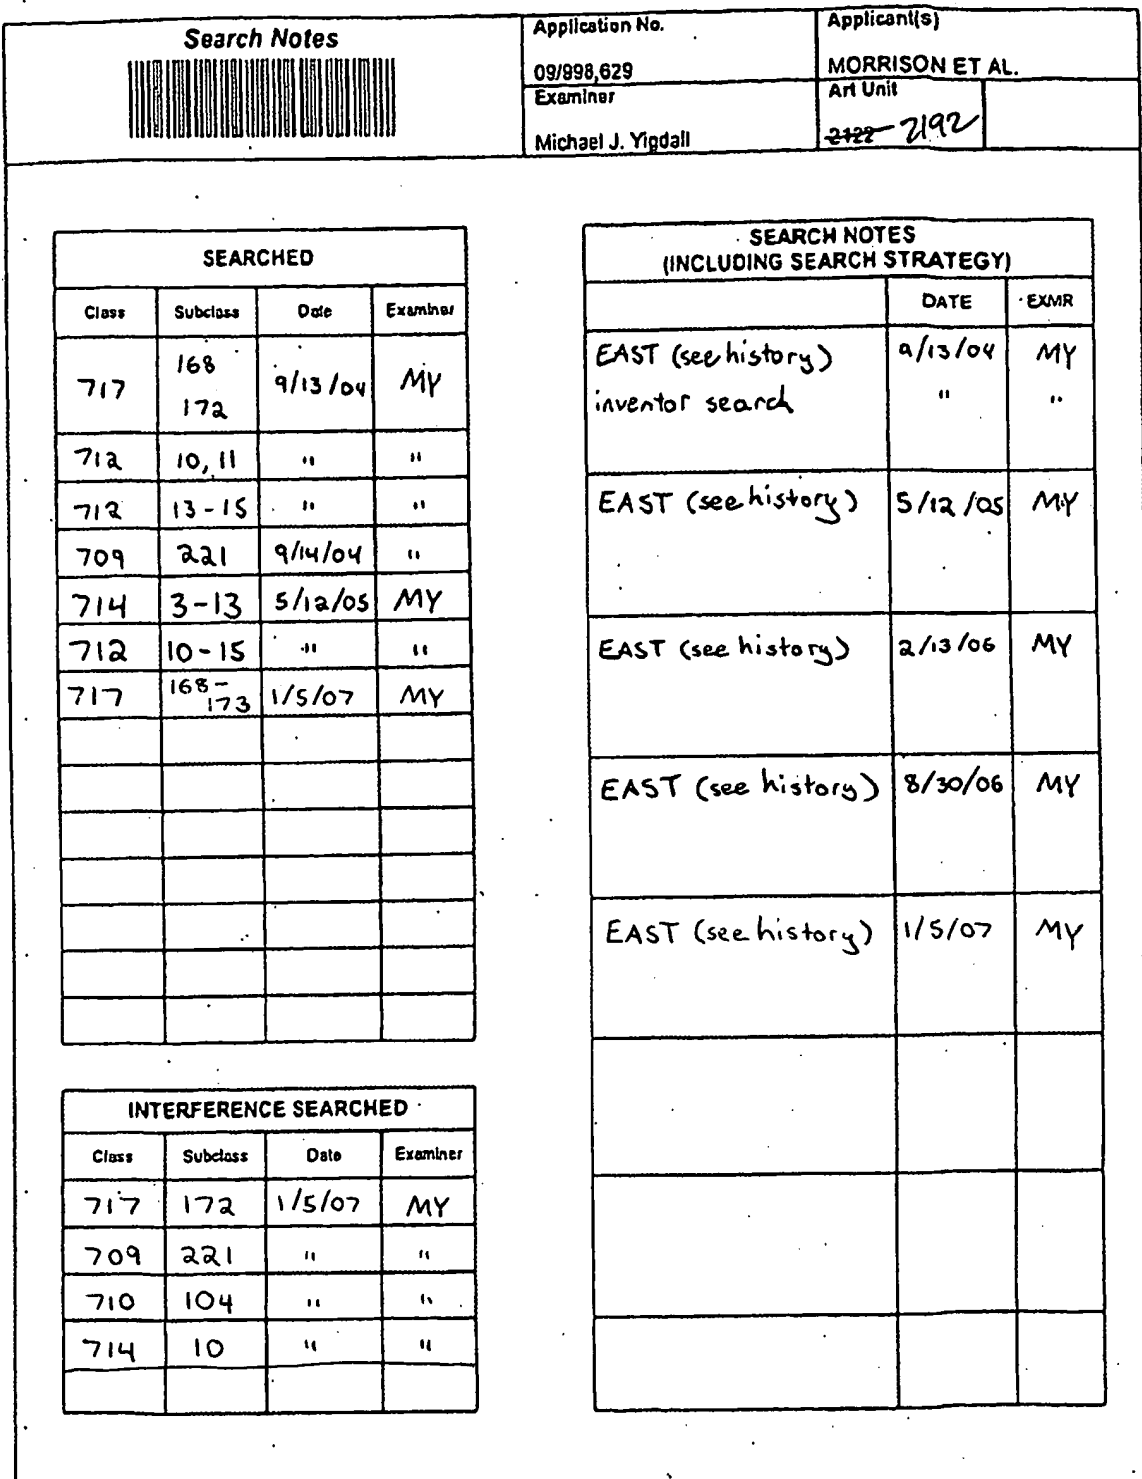 Search Notes
Application No.
Applicant(s)
09/998,629
MORRISON ET AL.
Examiner
Art Unit
Michael J. Yigdall
2122 2192
SEARCHED
Class Subclass Date Examiner
717 168 172 9/13/04 MY
712 10, 11 " "
712 13-15 " "
709 221 9/14/04 "
714 3-13 5/12/05 MY
712 10-15 " "
717 168-173 1/5/07 MY
INTERFERENCE SEARCHED
Class Subclass Date Examiner
717 172 1/5/07 MY
709 221 " "
710 104 " "
714 10 " "
SEARCH NOTES
(INCLUDING SEARCH STRATEGY)
DATE EXMR
EAST (see history) 9/13/04 MY
inventor search " "
EAST (see history) 5/12/05 MY
EAST (see history) 2/13/06 MY
EAST (see history) 8/30/06 MY
EAST (see history) 1/5/07 MY